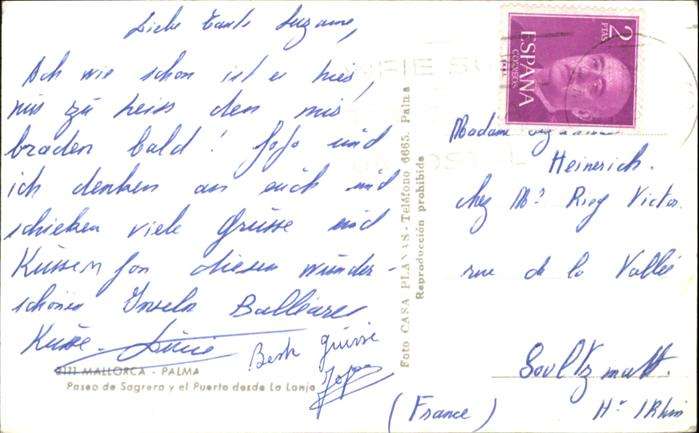 Liebe Tante Suzanne,
Ach wie schon ist es hier,
nur zu heiss den mir
braden bald! JoJo und
ich denken an euch und
schicken viele Grüsse und
Küssen fon diesen wunder-
schönen Inseln Balléares
Küsse - Lucie
Beste grüsse
Jojo
9111 MALLORCA - PALMA
Paseo de Sagrera y el Puerto desde La Lonja
Foto CASA PLANAS - Teléfono 6665. Palma
Reproducción prohibida
2
PTAS
ESPAÑA
CORREOS
Madame Suzanne
Heinerich.
chez Mr Rieg Victor
rue de la Vallée
Soultzmatt.
(France) Ht Rhin